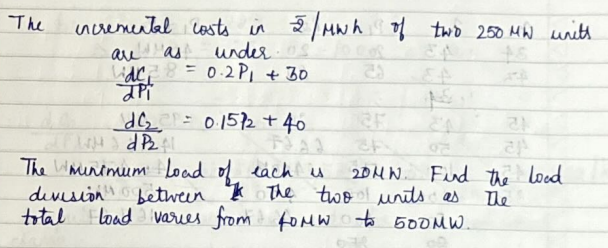 The incremental costs in ₹/MWh of two 250 MW units
are as under.
dC1/dP1 = 0.2P1 + 30
dC2/dP2 = 0.15P2 + 40
The minimum load of each is 20MW. Find the load
division between the two units as the
total load varies from 40MW to 500MW.